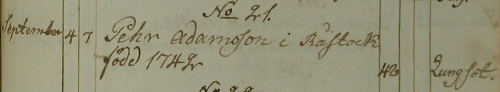 No 21.
September 4 7 Pehr Adamsson i Råstock
född 1742 42 Lungsot.